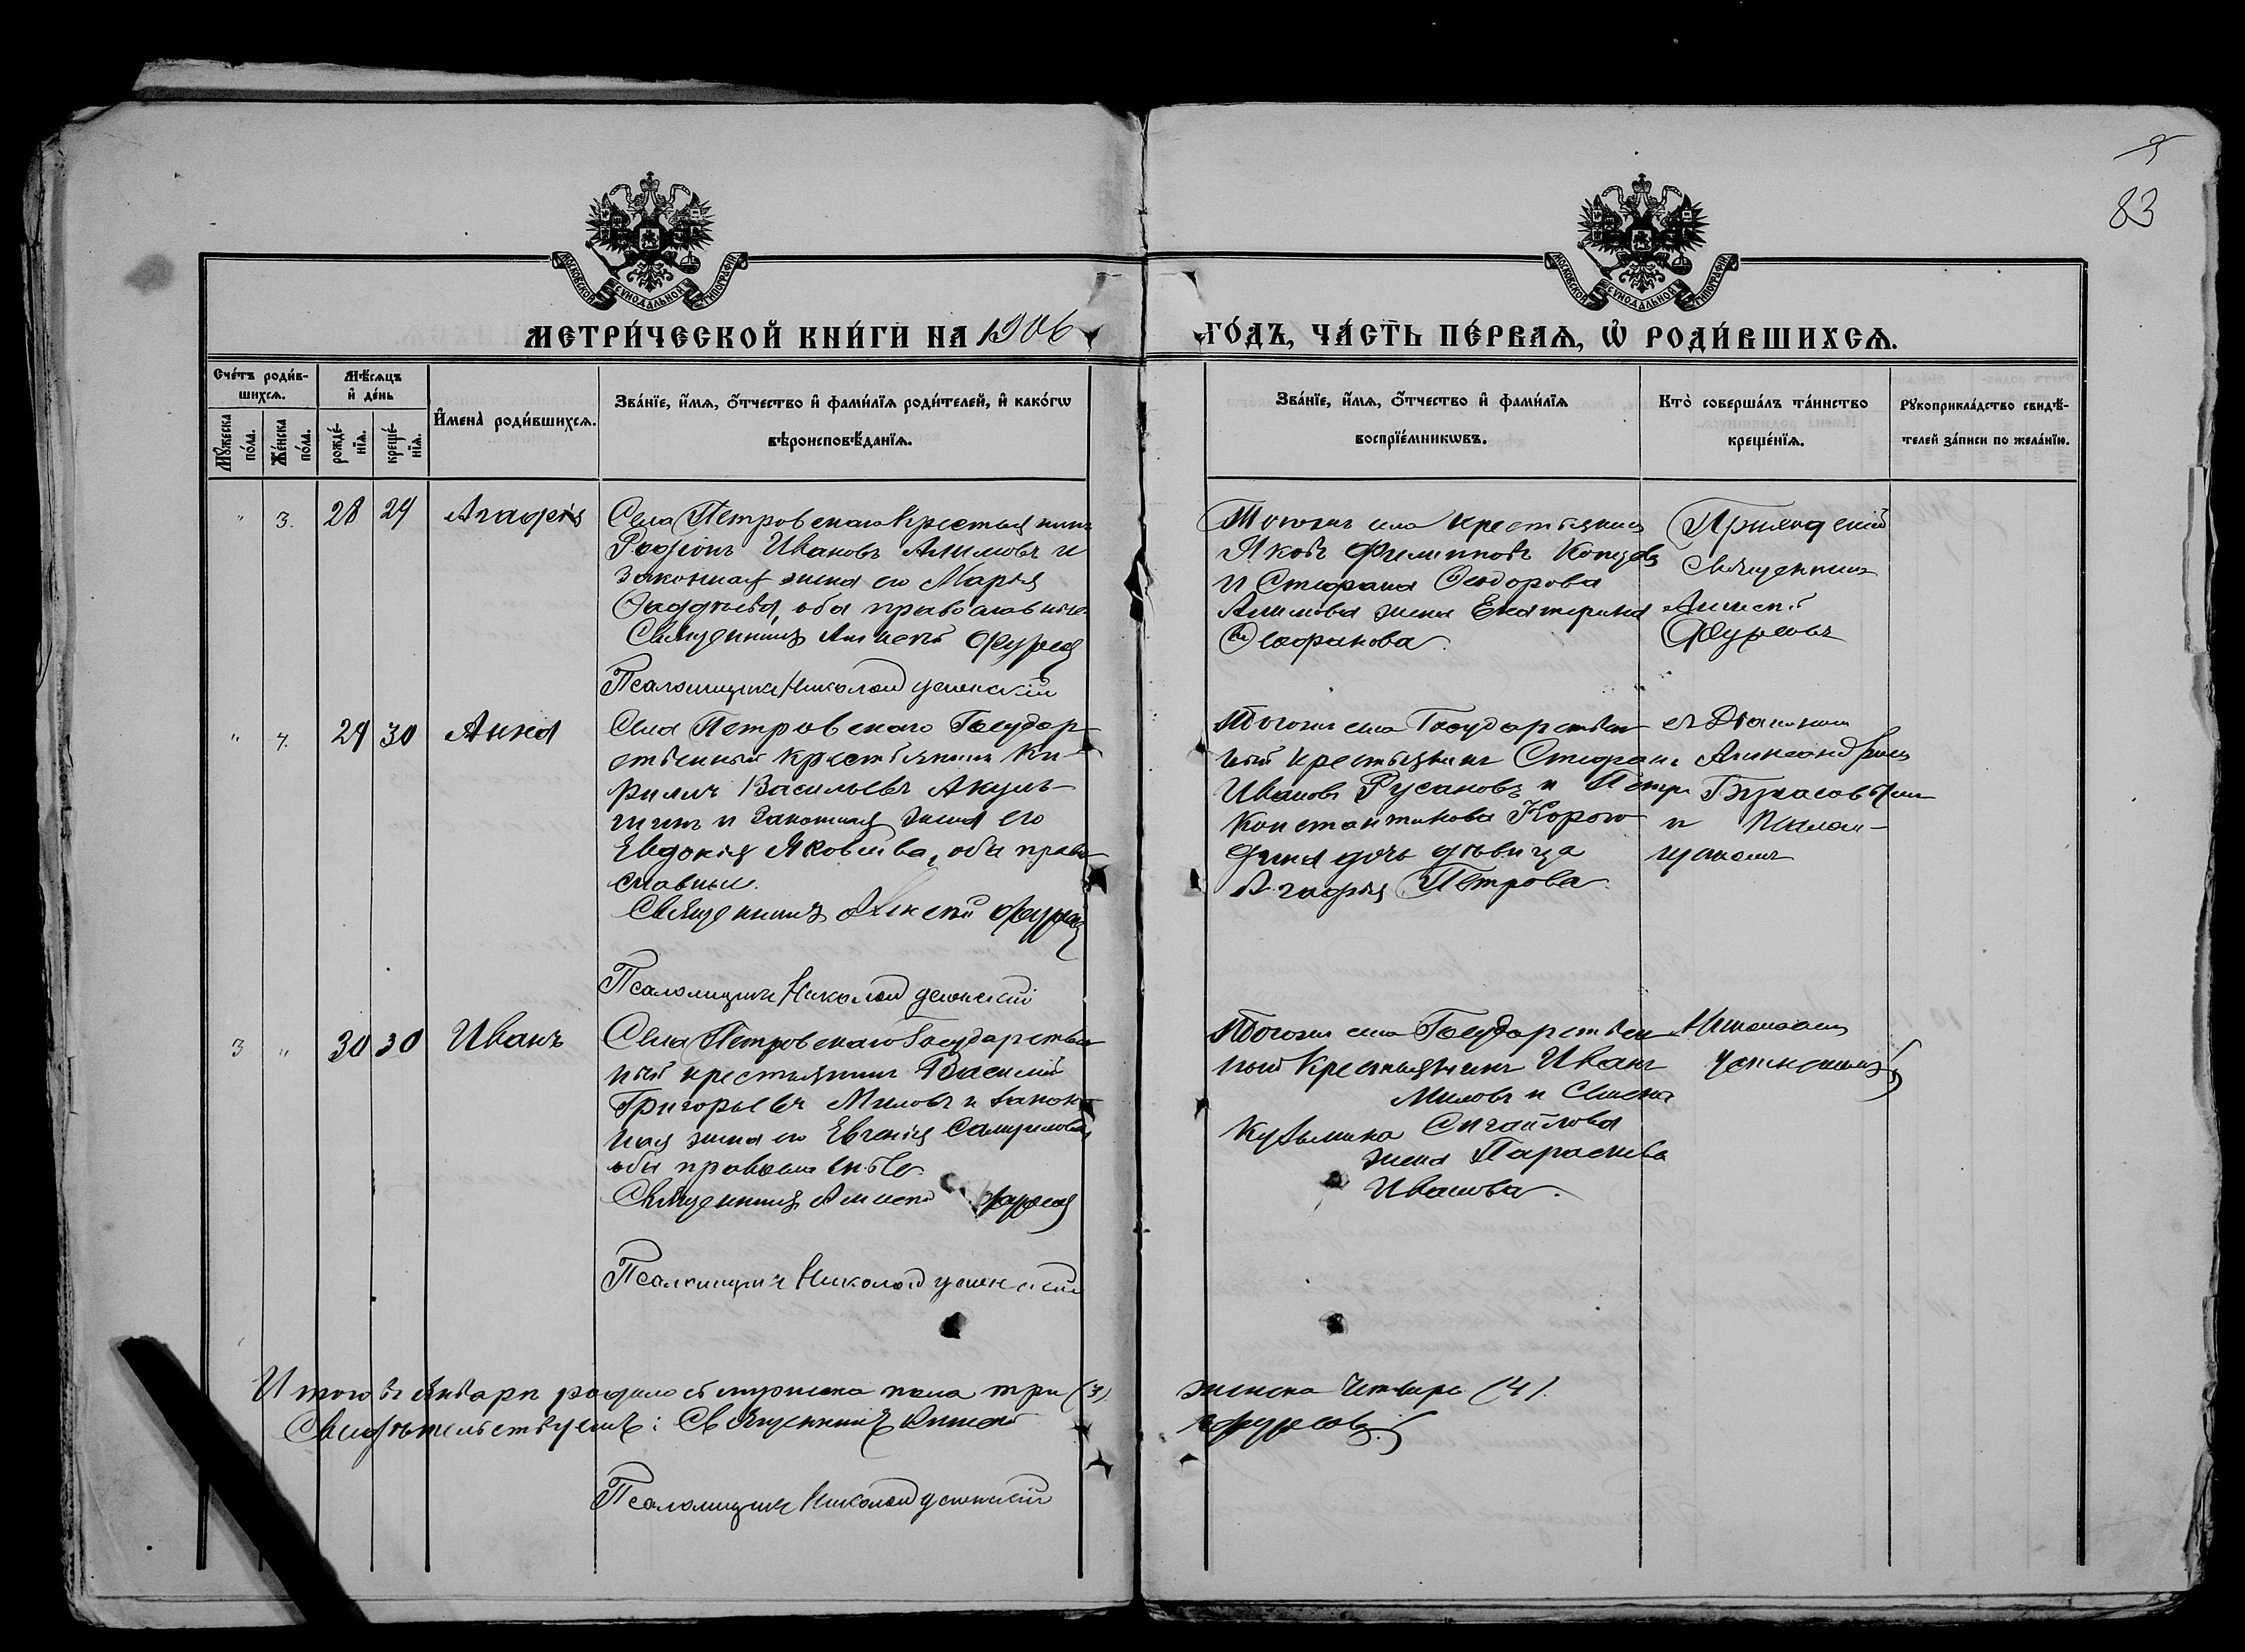 5
83
МОСКОВСКОЙ СѴНОДАЛЬНОЙ ТИПОГРАФІИ
МОСКОВСКОЙ СѴНОДАЛЬНОЙ ТИПОГРАФІИ
МЕТРИ́ЧЕСКОЙ КНИ́ГИ НА 1906
ГО́ДЪ, ЧА́СТЬ ПЕ́РВАѦ, Ѡ҆ РОДИ́ВШИХСѦ.
Сче́тъ роди́в-
шихсѧ.
Мꙋ́жеска по́ла.
Же́нска по́ла.
Мѣ́сѧцъ
и҆ де́нь
рожде́-
нїѧ.
креще́-
нїѧ.
И҆мена̀ роди́вшихсѧ.
Зва́нїе, и҆́мѧ, ѻ҆́тчество и҆ фами́лїѧ роди́телей, и҆ како́гѡ
вѣроисповѣ́данїѧ.
Зва́нїе, и҆́мѧ, ѻ҆́тчество и҆ фами́лїѧ
воспрїе́мникѡвъ.
Кто̀ соверша́лъ та́инство
креще́нїѧ.
Рꙋкоприкла́дство свидѣ́-
телей за́писи по жела́нїю.
" 3. 28 29 Агафія
Села Петровскаго крестьянинъ
Родіонъ Ивановъ Алимовъ и
законная жена его Марія
Фаддѣева, оба православные
Священникъ Алексѣй Фурсов
Псаломщикъ Николай Успенскій
Тогоже села крестьянинъ
Яковъ Филипповъ Копцовъ
и Стефана Ѳеодорова
Алимова жена Екатерина
Приходскій
Священникъ
Алексѣй
Фурсовъ
" 4. 29 30 Анна
Села Петровскаго Государ-
ственный крестьянинъ Ки-
риллъ Васильевъ Акуль-
шинъ и законная жена его
Евдокія Яковлева, оба право
славные.
Священникъ Алексѣй Фурсов
Псаломщикъ Николай Успенскій
Тогоже села Государствен
ный крестьянинъ Стефанъ
Ивановъ Русановъ и Петра
Константинова
дочь дѣвица
Агафія Петрова.
съ Діакономъ
Александромъ
и Псалом-
щикомъ
3 " 30 30 Иванъ
Села Петровскаго Государствен
ный крестьянинъ Василій
Григорьевъ Миловъ и закон
ная жена его Евгенія Самуилова
оба православные
Священникъ Алексѣй Фурсов
Псаломщикъ Николай Успенскій
Тогоже села Государствен
ный крестьянинъ Иванъ
Миловъ и
Кузьмина
жена Параскева
Иванова.
Николаемъ
Успенскимъ
Итого въ Январѣ родилось мужеска пола три (3)
женска четыре (4).
Свидѣтельствуемъ: Священникъ Алексѣй
Фурсовъ
Псаломщикъ Николай Успенскій